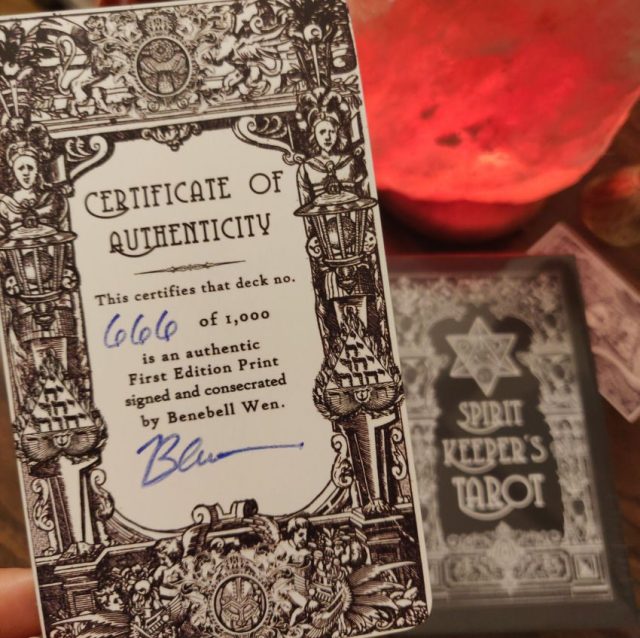 CERTIFICATE OF
AUTHENTICITY
This certifies that deck no.
666 of 1,000
is an authentic
First Edition Print
signed and consecrated
by Benebell Wen.
SPIRIT
KEEPER'S
TAROT